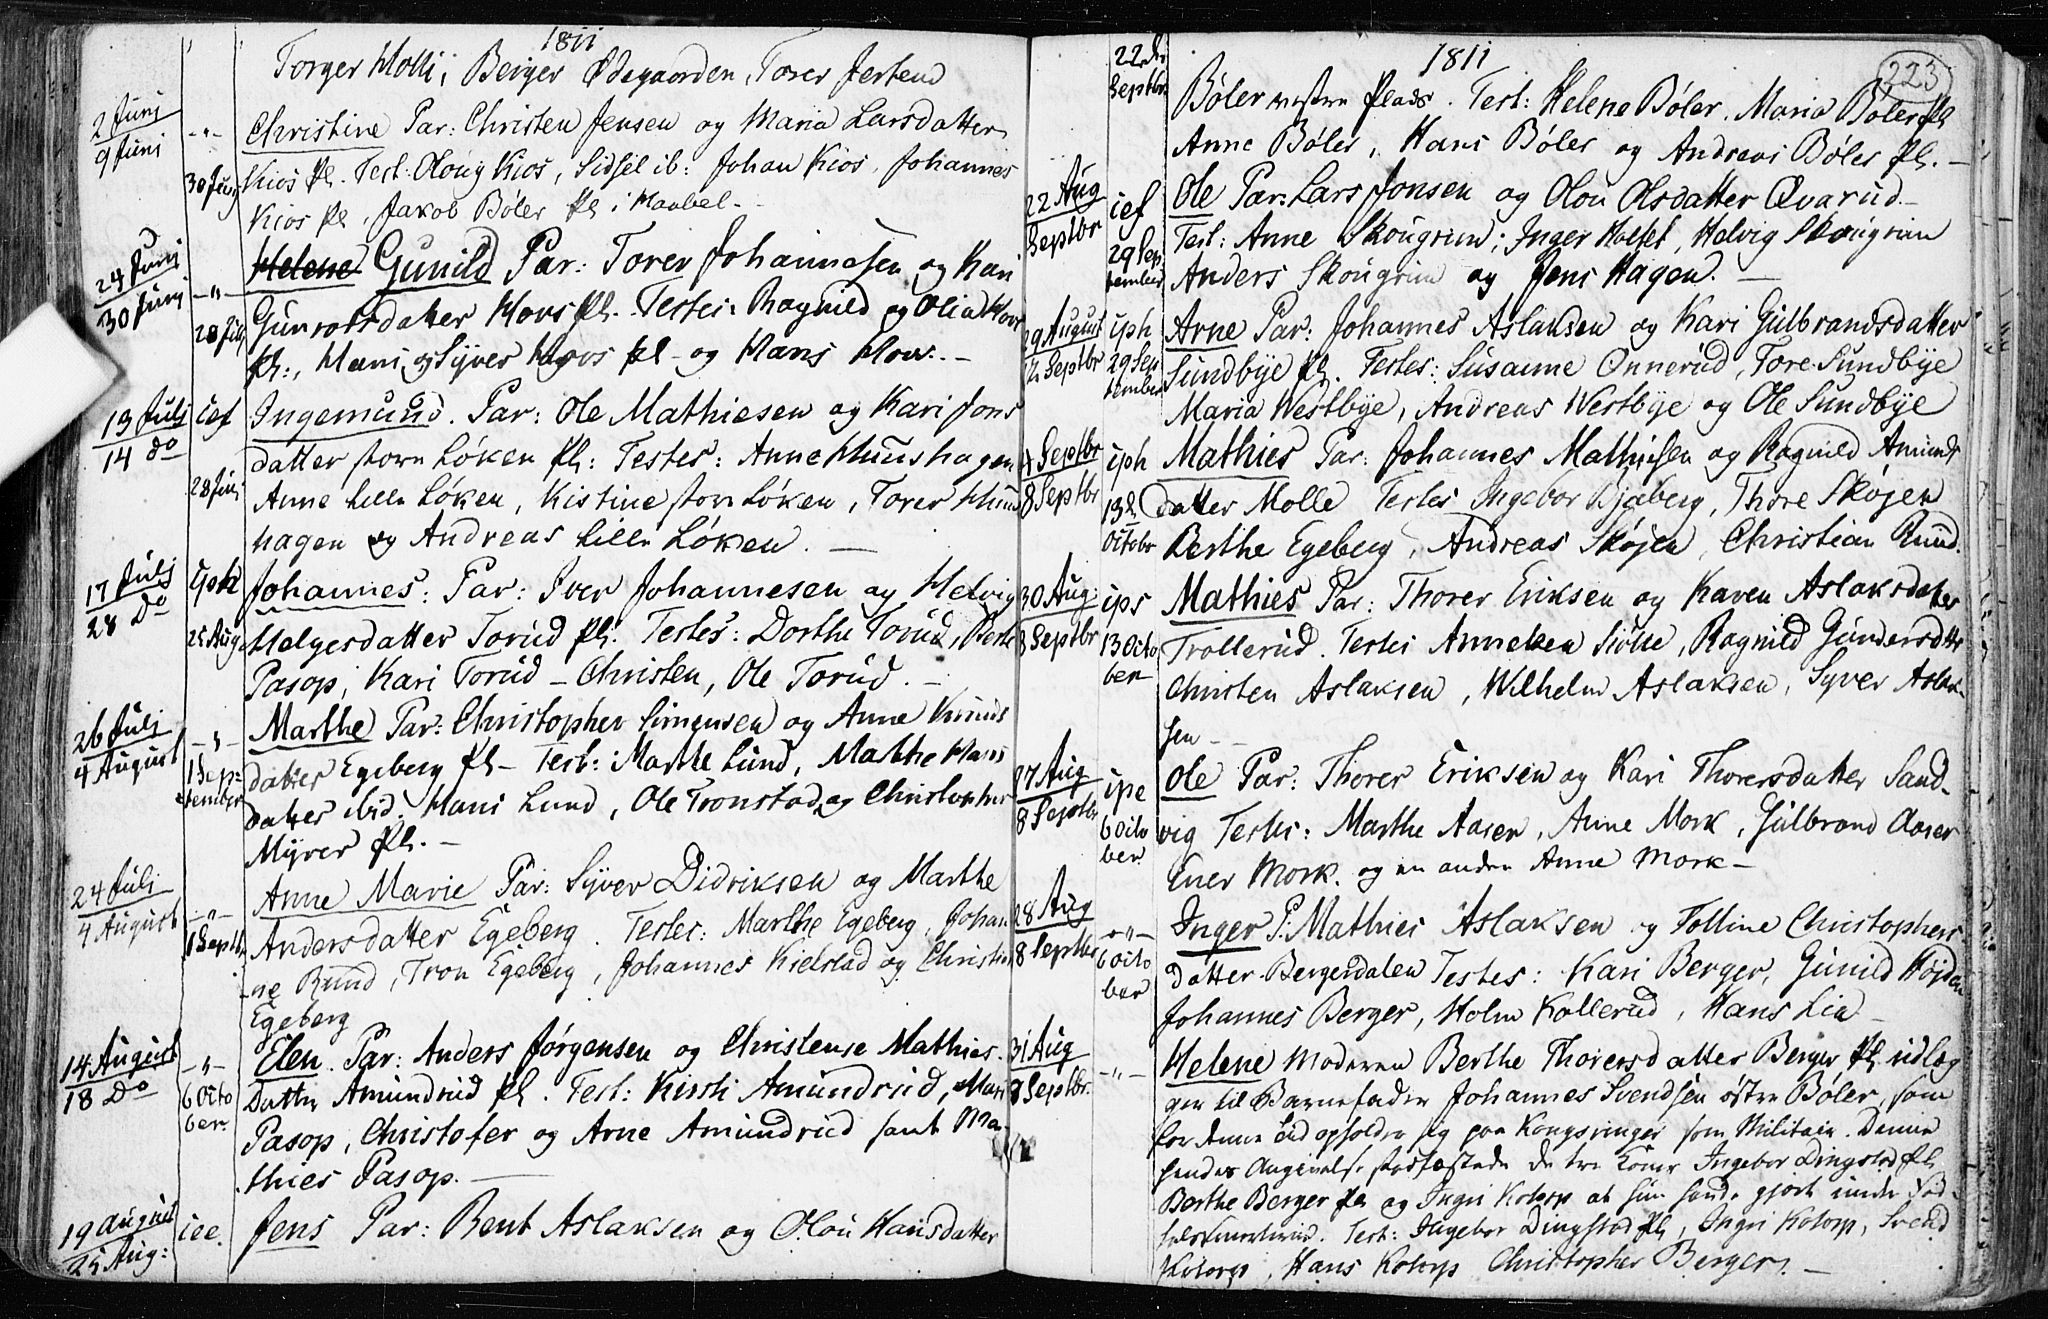 1811
Torger Molli, Berger Ødegaarden, Torer Jertend
2 Juni
9 Juni
30 Juni
Christine Par: Christen Jensen og Maria Larsdatter
Kios Pl. Test: Oloug Kios, Sidsel ib: Johan Kios, Johannes
Kios Pl, Jakob Bøler Pl i Haabel.
24 Juni
30 Juni
28 Juli
Helene Gunild Par: Torer Johannesen og Kari
Gunvorsdatter Hovs Pl. Testes: Ragnild og Olia Hovs
Pl:, Hans og Syver Hovs Pl og Hans Hov. –
13 Julj
14 do
ief
28 Juli
Ingemund. Par: Ole Mathiesen og Kari Jons
datter storn Løken Pl: Testes: Anne Muushagen
Anne lille Løken, Kistine storn Løken, Torer Muus
hagen og Andreas lille Løken. –
17 Julj
28 Do
iph
25 Aug
Johannes: Par: Iver Johannesen og Helvig
Helgesdatter Torud Pl: Testes: Dorthe Torud, Berte
Pasop, Kari Torud – Christen, Ole Torud. –
26 Julj
4 August
1 Sep:
tember
Marthe Par: Christopher Simensen og Anne Knuds
datter Egeberg Pl – Test: Marthe Lund, Marthe Hans
datter ibid. Hans Lund, Ole Tronstad og Christopher
Myrer Pl. –
24 Julj
4 August
1 Septbr
Anne Marie Par: Syver Didriksen og Marthe
Andersdatter Egeberg. Testes: Marthe Egeberg, Johan
ne Rund, Tron Egeberg, Johannes Kielstad og Christian
Egeberg
14 August
18 Do
6 Octo
ber
Elen. Par: Anders Jørgensen og Christense Mathies-
Dattr Amundrud Pl. Test: Kirsti Amundrud, Mari
Pasop, Christofer og Arne Amundrud samt Ma-
thies Pasop. –
19 August
25 Aug:
iee.
Jens Par: Bent Aslaksen og Olou Hansdatter
1811
223
22 de
Septbr
Bøler vestre Plads. Test: Helene Bøler, Maria Bøler Pl
Anne Bøler, Hans Bøler og Andreas Bøler Pl. –
22 Aug
Septbr
ief
29 Sep
tember
Ole Par: Lars Jonsen og Olou Olsdatter Qvarud –
Test: Anne Skougrim; Inger Holset, Helvig Skougrim
Anders Skougrim og Jens Hagen. –
29 August
12 Septbr
iph
29 Sep
tember
Arne Par: Johannes Aslaksen og Kari Gulbrandsdatter
Sundbye Pl. Testes: Susanne Onnerud, Tore Sundbye
Maria Westbye, Andreas Westbye og Ole Sundbye
4 Septbr
8 Septbr
iph
13 de
Octobr
Mathies Par: Johannes Mathiesen og Ragnild Amunds
datter Molle Testes Ingebor Bjeberg, Thore Skøjen
Berthe Egeberg, Andreas Skøjen, Christian Rund.
30 Aug:
8 Septbr
ips
13 Octo
ber
Mathies Par: Thorer Eriksen og Karen Aslaksdatter
Trollerud. Testes Anneken, Ragnild Gundersdttr
Christen Aslaksen, Wilhelm Aslaksen, Syver Aslak-
sen –
27 Aug
8 Septbr
ipe
6 Octo
ber
Ole Par: Thorer Eriksen og Kari Thorersdatter Sand-
vig Testes: Marthe Aasen, Anne Mork, Gulbrand Aaser
Ener Mork. og en anden Anne Mork –
28 Aug
8 Septbr
6 Octo
ber
Inger P: Mathies Aslaksen og Golline Christophers
datter Bergerdalen Testes: Kari Berger, Gunild Højden
Johannes Berger, Holm Kollerud, Hans Lia –
31 Aug
8 Septbr.
Helene Moderen Berthe Thorersdatter Berger Pl udlæg
ger til Barnefader Johannes Svendsen østre Bøler, som
for Annen tid opholder sig paa Kongsvinger som Militair. Denne
hendes Angivelse stadfæstede de tre Koner Ingebor Dingstad Pl
Berthe Berger Pl og Ingri Kotorp at hun havde gjort under Fød-
selssmerterne. Test: Ingebor Dingstad Pl, Ingri Kotorp, Svend
Kotorp, Hans Kotorp Christopher Berger. –